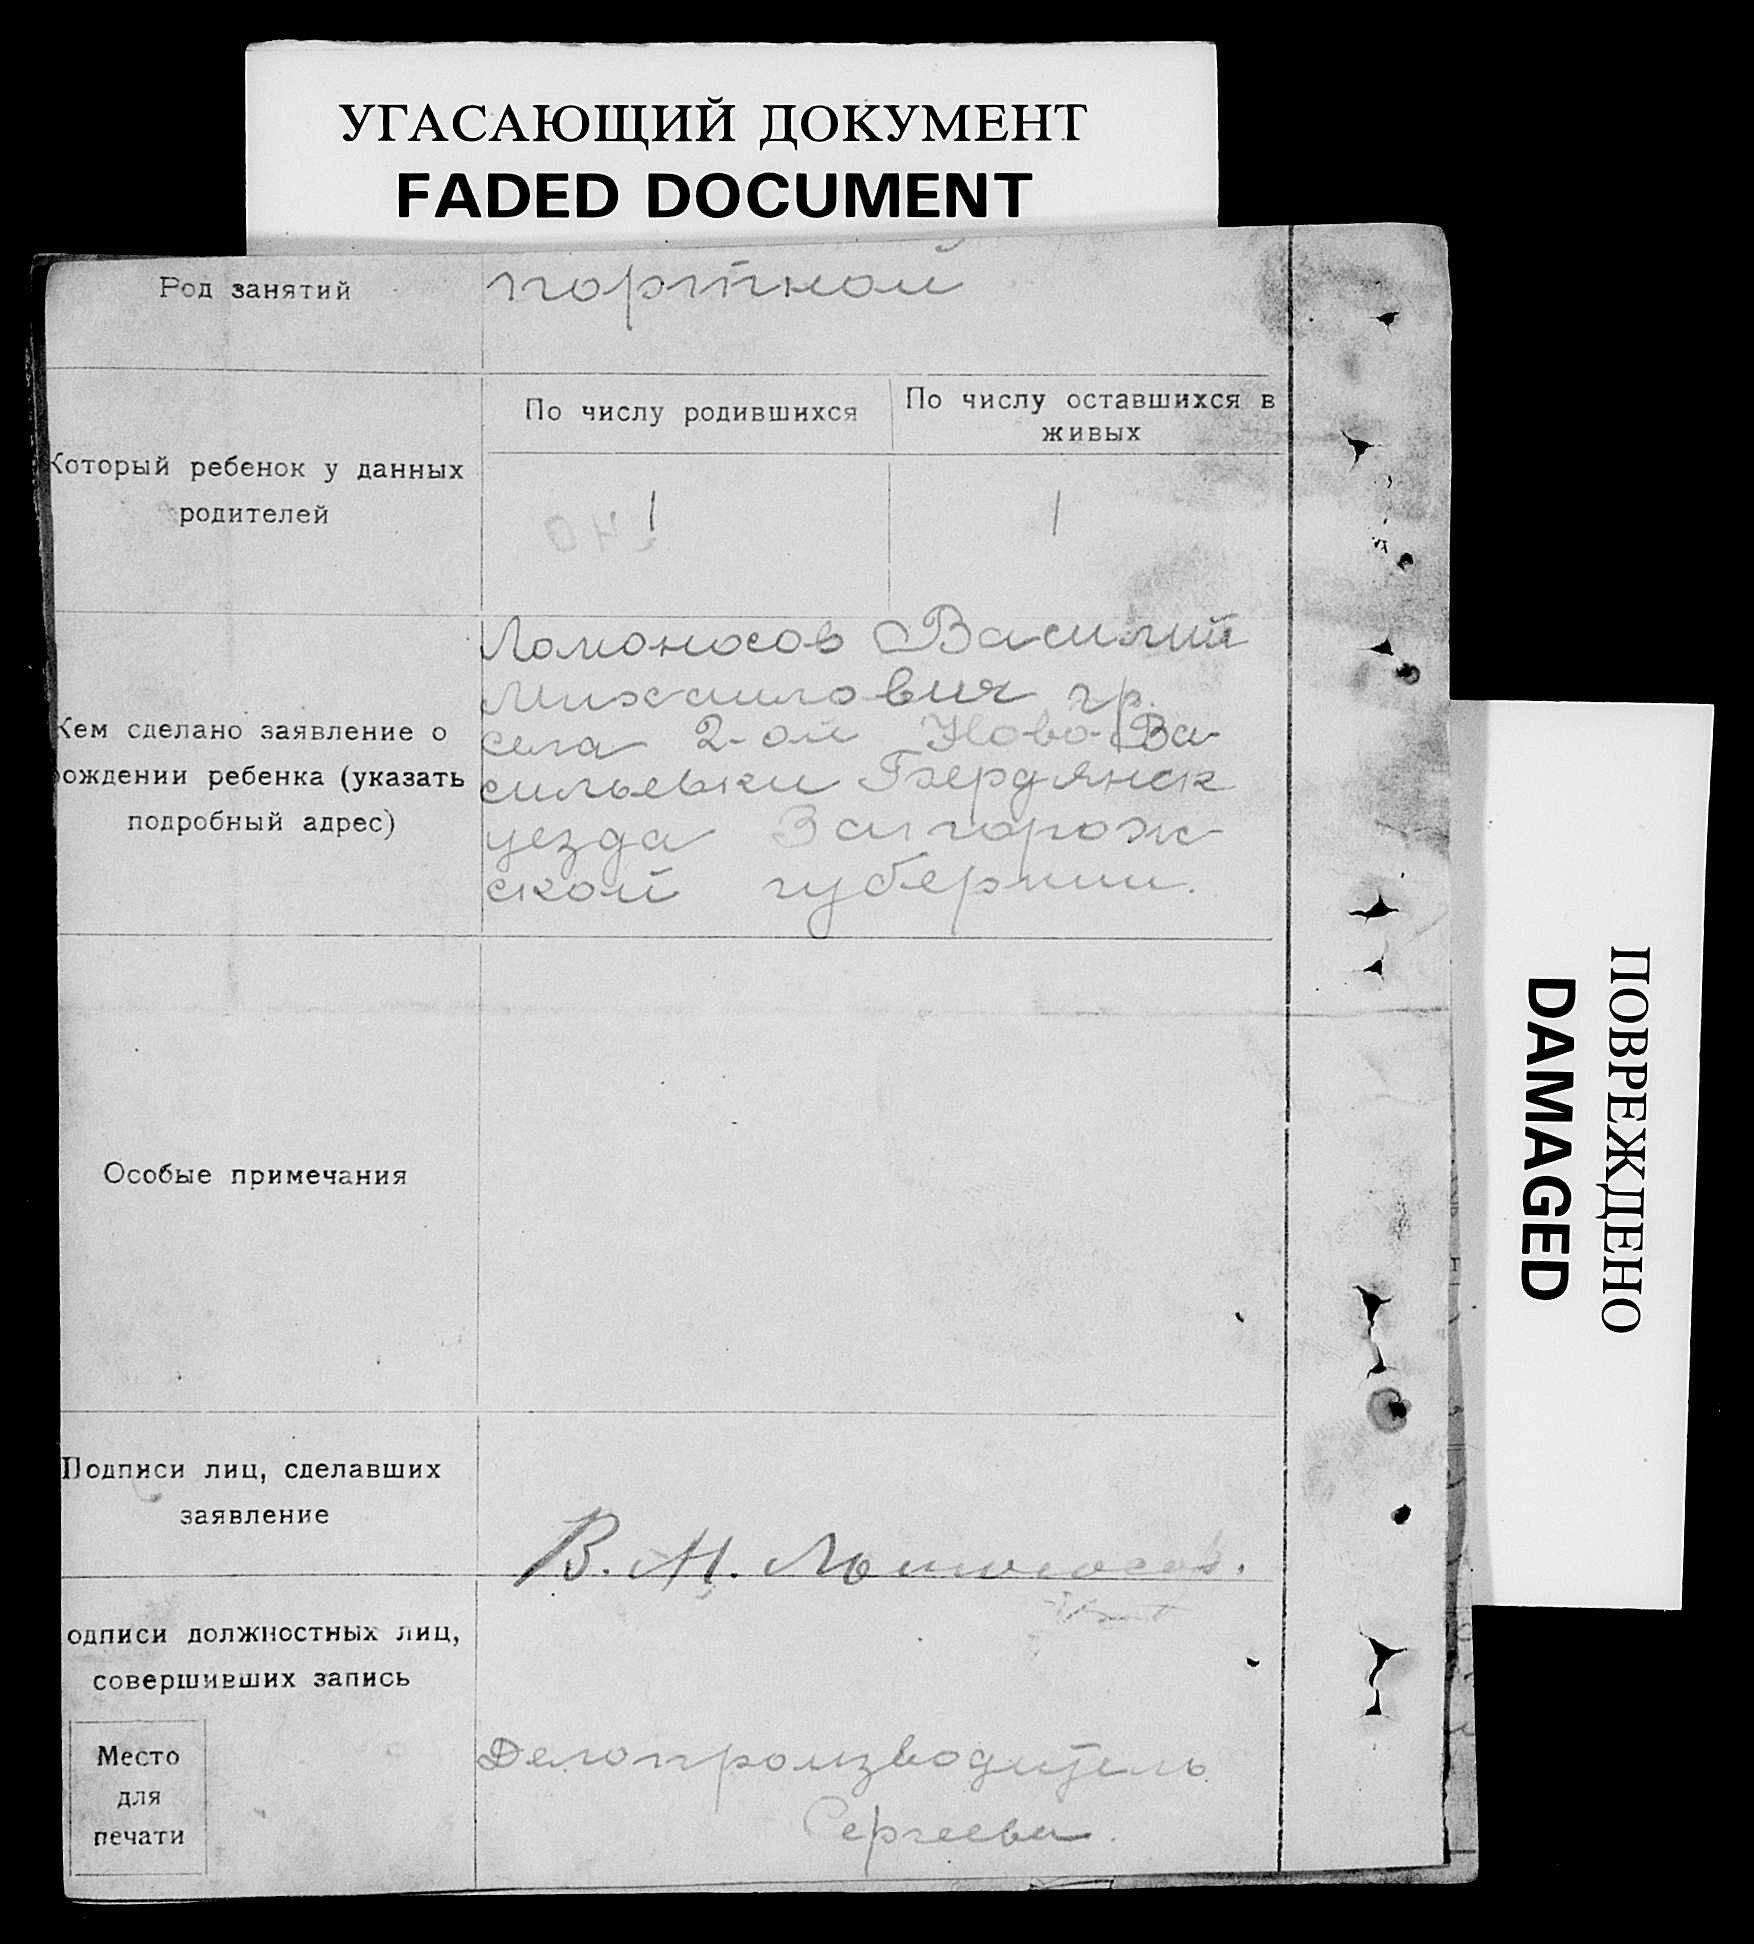 УГАСАЮЩИЙ ДОКУМЕНТ
FADED DOCUMENT
Род занятий
портной
По числу родившихся
По числу оставшихся в
живых
Который ребенок у данных
родителей
1
1
Кем сделано заявление о
рождении ребенка (указать
подробный адрес)
Ломоносов Василий
Михайлович гр.
села 2-ой Ново-Ва-
сильевки Бердянск
уезда Запорож
ской губернии.
Особые примечания
Подписи лиц, сделавших
заявление
В. М. Ломоносов.
одписи должностных лиц,
совершивших запись
Место
для
печати
Делопроизводитель
Сергеева.
ПОВРЕЖДЕНО
DAMAGED